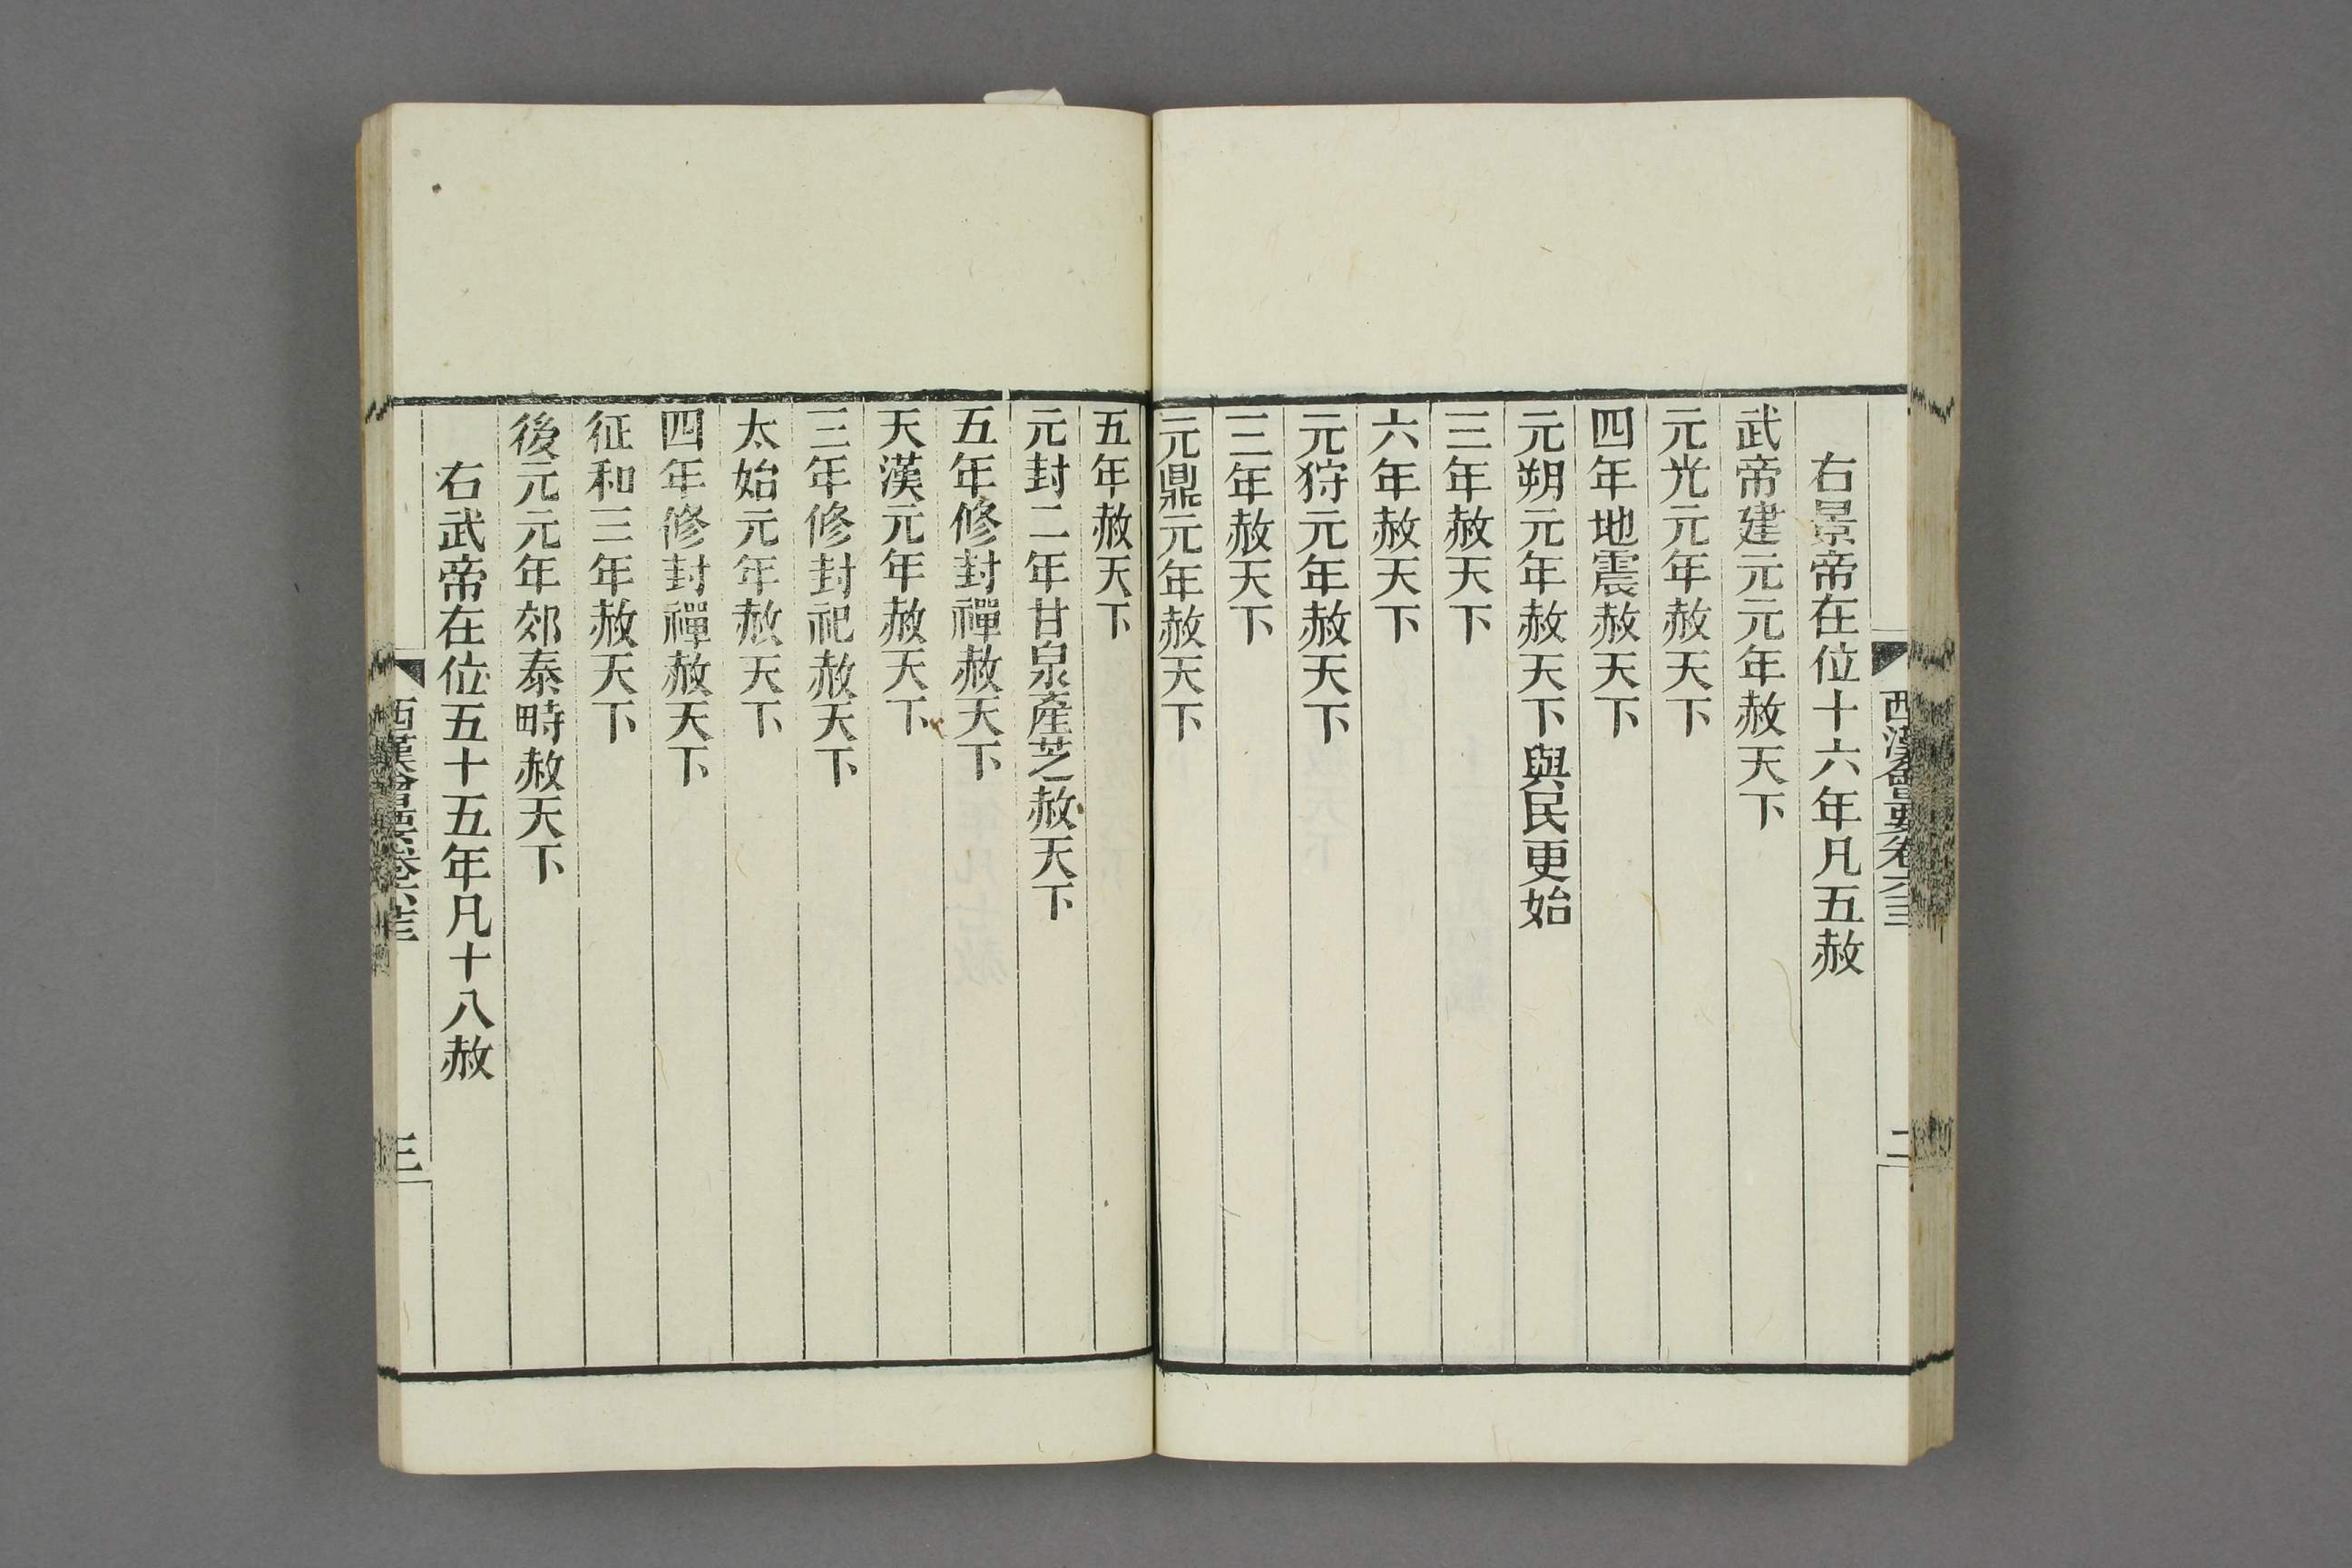 西漢會要卷六三
二
右景帝在位十六年凡五赦
武帝建元元年赦天下
元光元年赦天下
四年地震赦天下
元朔元年赦天下與民更始
三年赦天下
六年赦天下
元狩元年赦天下
三年赦天下
元鼎元年赦天下
五年赦天下
元封二年甘泉產芝赦天下
五年修封禪赦天下
天漢元年赦天下
三年修封祀赦天下
太始元年赦天下
四年修封禪赦天下
征和三年赦天下
後元元年郊泰畤赦天下
右武帝在位五十五年凡十八赦
西漢會要卷六三
三